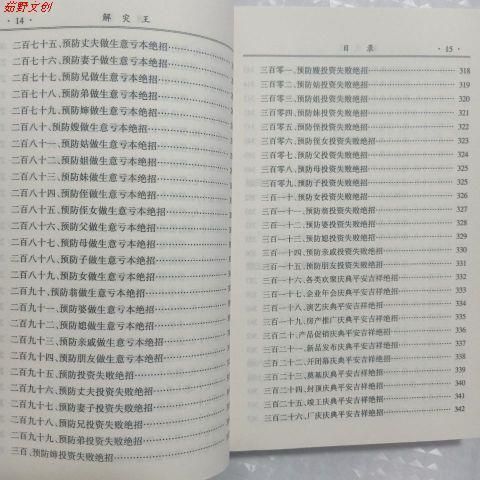 茹野文创
· 14 · 解灾王
二百七十五、预防丈夫做生意亏本绝招
二百七十六、预防妻子做生意亏本绝招
二百七十七、预防兄做生意亏本绝招
二百七十八、预防弟做生意亏本绝招
二百七十九、预防婶做生意亏本绝招
二百八十、预防嫂做生意亏本绝招
二百八十一、预防姑做生意亏本绝招
二百八十二、预防姐做生意亏本绝招
二百八十三、预防妹做生意亏本绝招
二百八十四、预防侄做生意亏本绝招
二百八十五、预防侄女做生意亏本绝招
二百八十六、预防父做生意亏本绝招
二百八十七、预防母做生意亏本绝招
二百八十八、预防子做生意亏本绝招
二百八十九、预防女做生意亏本绝招
二百九十、预防翁做生意亏本绝招
二百九十一、预防婆做生意亏本绝招
二百九十二、预防媳做生意亏本绝招
二百九十三、预防亲戚做生意亏本绝招
二百九十四、预防朋友做生意亏本绝招
二百九十五、预防投资失败绝招
二百九十六、预防丈夫投资失败绝招
二百九十七、预防妻子投资失败绝招
二百九十八、预防兄投资失败绝招
二百九十九、预防弟投资失败绝招
三百、预防婶投资失败绝招
目录 · 15 ·
三百零一、预防嫂投资失败绝招 318
三百零二、预防姑投资失败绝招 319
三百零三、预防姐投资失败绝招 320
三百零四、预防妹投资失败绝招 321
三百零五、预防侄投资失败绝招 322
三百零六、预防侄女投资失败绝招 323
三百零七、预防父投资失败绝招 324
三百零八、预防母投资失败绝招 325
三百零九、预防子投资失败绝招 325
三百一十、预防女投资失败绝招 326
三百一十一、预防翁投资失败绝招 327
三百一十二、预防婆投资失败绝招 328
三百一十三、预防媳投资失败绝招 329
三百一十四、预防亲戚投资失败绝招 330
三百一十五、预防朋友投资失败绝招 331
三百一十六、各类欢聚庆典平安吉祥绝招 332
三百一十七、企业年会庆典平安吉祥绝招 333
三百一十八、演艺庆典平安吉祥绝招 334
三百一十九、房产推广庆典平安吉祥绝招 335
三百二十、产品促销庆典平安吉祥绝招 336
三百二十一、新品发布庆典平安吉祥绝招 337
三百二十二、开闭幕庆典平安吉祥绝招 338
三百二十三、奠基庆典平安吉祥绝招 339
三百二十四、封顶庆典平安吉祥绝招 340
三百二十五、竣工庆典平安吉祥绝招 341
三百二十六、厂庆庆典平安吉祥绝招 342